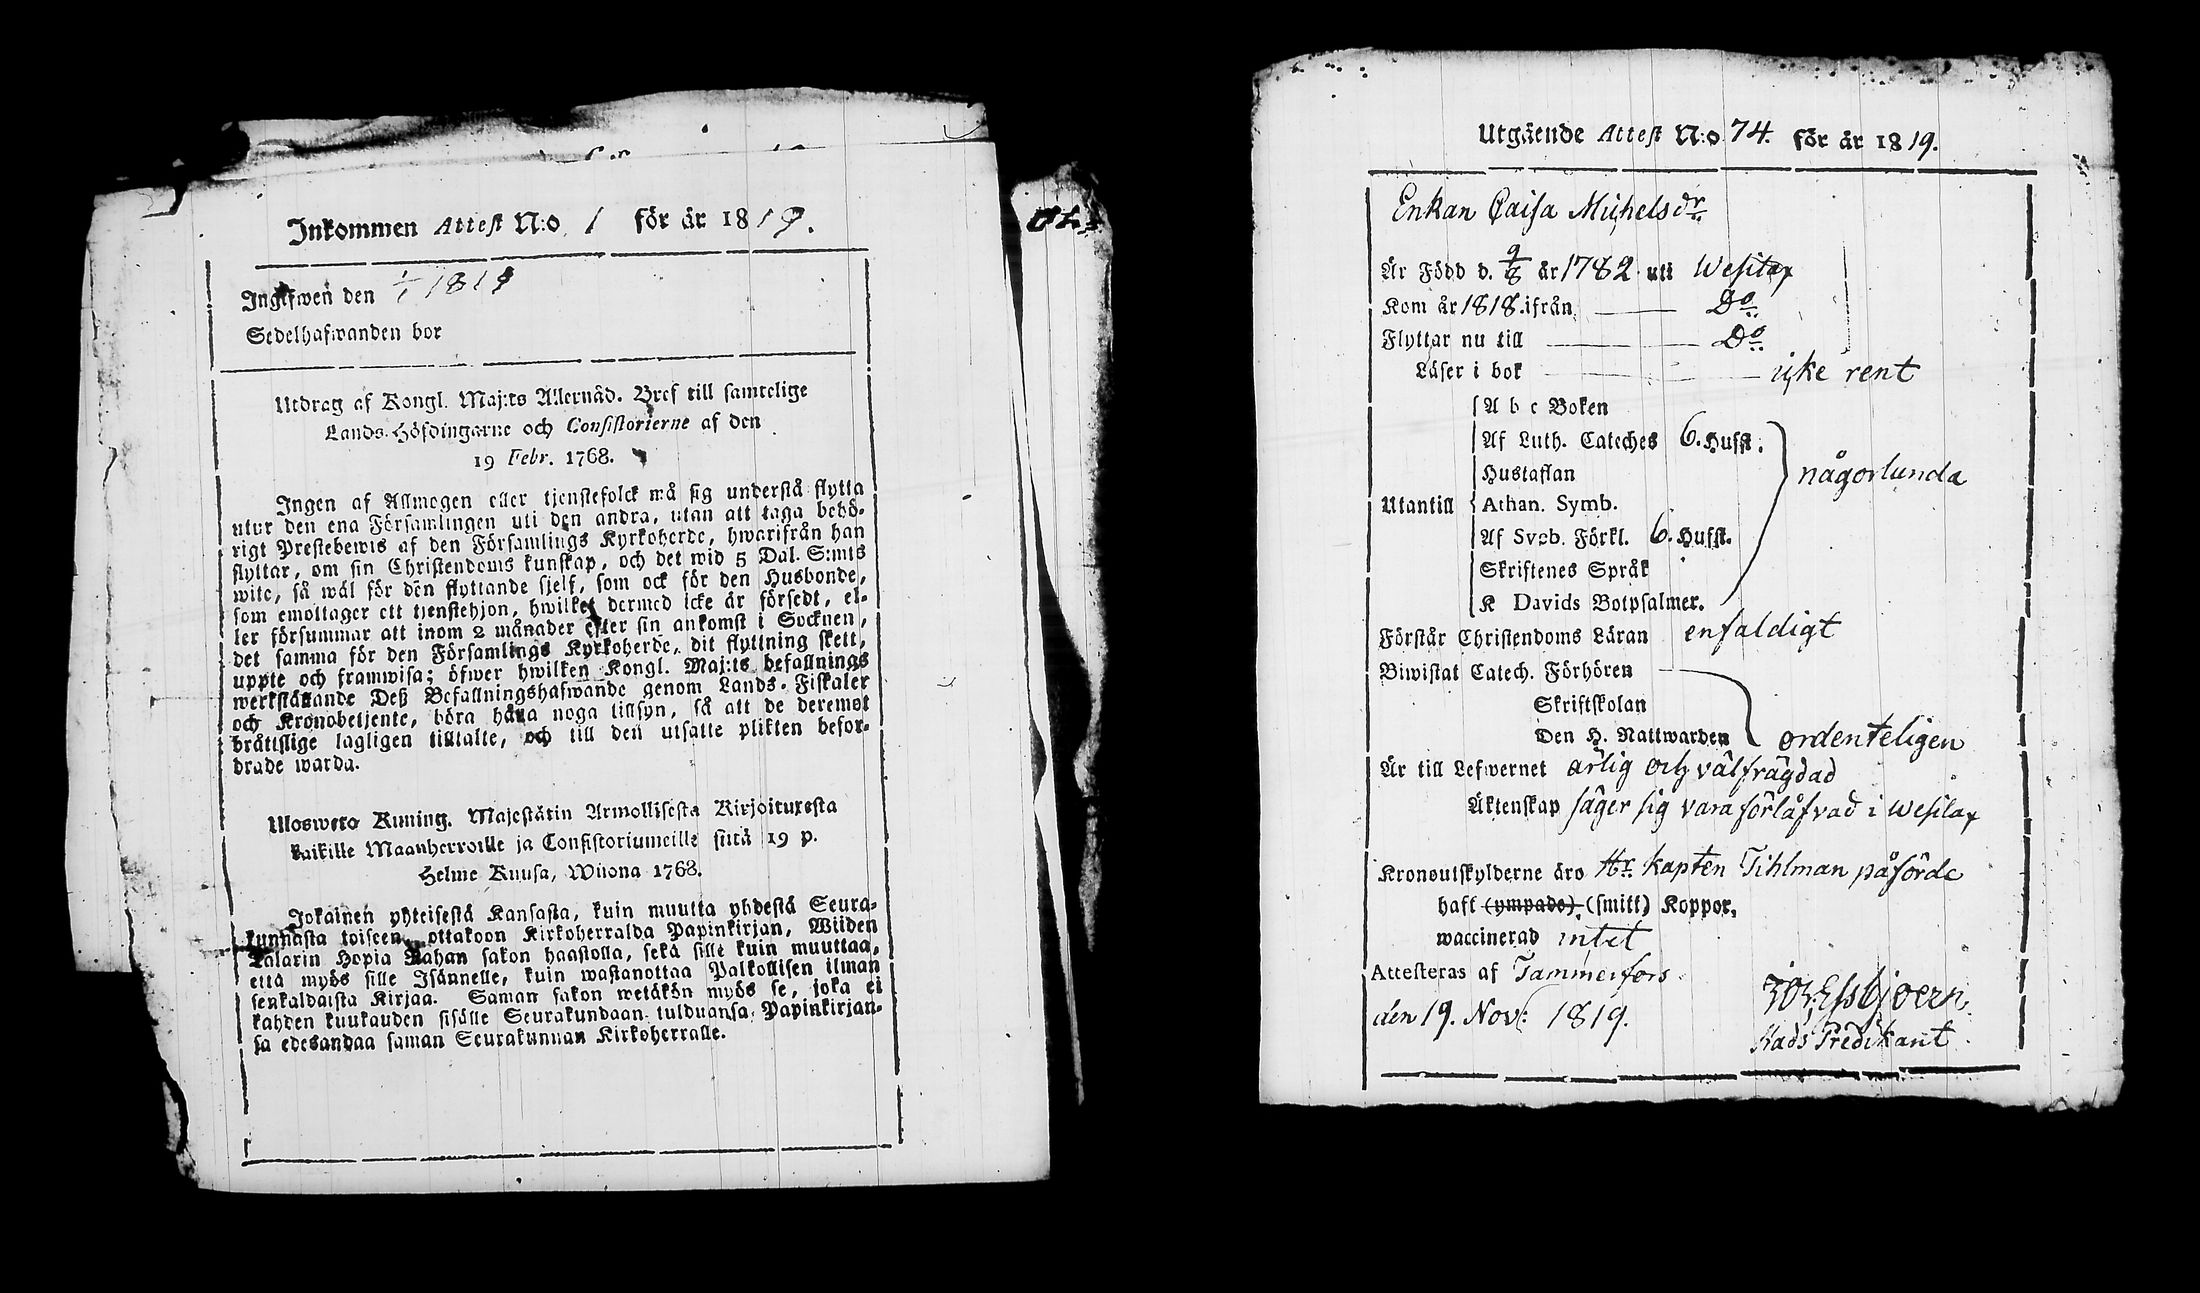 Inkommen Attest N:o 1 för år 1819.
Ingifwen den 1/1 1819
Sedelhafwanden bor
Utdrag af Kongl. Maj:ts Allernåd. Bref till samtelige
Lands-Höfdingarne och Consistorierne af den
19 Febr. 1768.
Ingen af Allmogen eller tjenstefolck må sig understå flytta
utur den ena Församlingen uti den andra, utan att taga behö-
rigt Prestebewis af den Församlings Kyrkoherde, hwarifrån han
flyttar, om sin Christendoms kunskap, och det wid 5 Dal. S:mts
wite, så wäl för den flyttande sjelf, som ock för den Husbonde,
som emottager ett tjenstehjon, hwilket dermed icke är försedt, el-
ler försummar att inom 2 månader efter sin ankomst i Socknen,
det samma för den Församlings Kyrkoherde, dit flyttning skett,
uppte och framwisa; öfwer hwilken Kongl. Maj:ts befallnings
werkställande Deß Befallningshafwande genom Lands-Fiskaler
och Kronobetjente, böra hafwa noga tillsyn, så att de deremot
bråttslige lagligen tilltalte, och till den utsatte plikten befor-
drade warda.
Ulosweto Kuning. Majestätin Armollisesta Kirjoituxesta
kaikille Maanherroille ja Consistoriumeille siitä 19 p.
Helme Kuusa, Wuona 1768.
Jokainen yhteisestä Kansasta, kuin muutta yhdestä Seura-
kunnasta toiseen, ottakoon Kirkoherralda Papinkirjan, Wiiden
Talarin Hopia Rahan sakon haastolla, sekä sille kuin muuttaa,
että myös sille Isännelle, kuin wastanottaa Palkollisen ilman
senkaldaista Kirjaa. Saman sakon wetäkön myös se, joka ei
kahden kuukauden sisälle Seurakundaan tulduansa, Papinkirjan-
sa edesandaa saman Seurakunnan Kirkoherralle.
Utgående Attest N:o 74. för år 1819.
Enkan Caisa Michelsdr
Är Född d. 9/8 år 1782 uti Wesilax
Kom år 1818. ifrån Do
Flyttar nu till Do
Läser i bok icke rent
A b c Boken
Af Luth. Cateches 6. Hufst.
Hustaflan
någorlunda
Utantill Athan. Symb.
Af Sveb. Förkl. 6. Hufst.
Skriftenes Språk
K Davids Botpsalmer.
Förstår Christendoms Läran enfaldigt
Biwistat Catech. Förhören
Skriftskolan
Den H. Nattwarden ordenteligen
Är till Lefwernet ärlig och välfrägdad
Äktenskap säger sig vara förlåfvad i Wesilax
Kronoutskylderne äro Hr. Kapten Tihlman påförde
haft (ympade), (smitt) Koppor,
waccinerad intet
Attesteras af Tammerfors
den 19. Nov: 1819.
Essbjoern
Stads Predikant